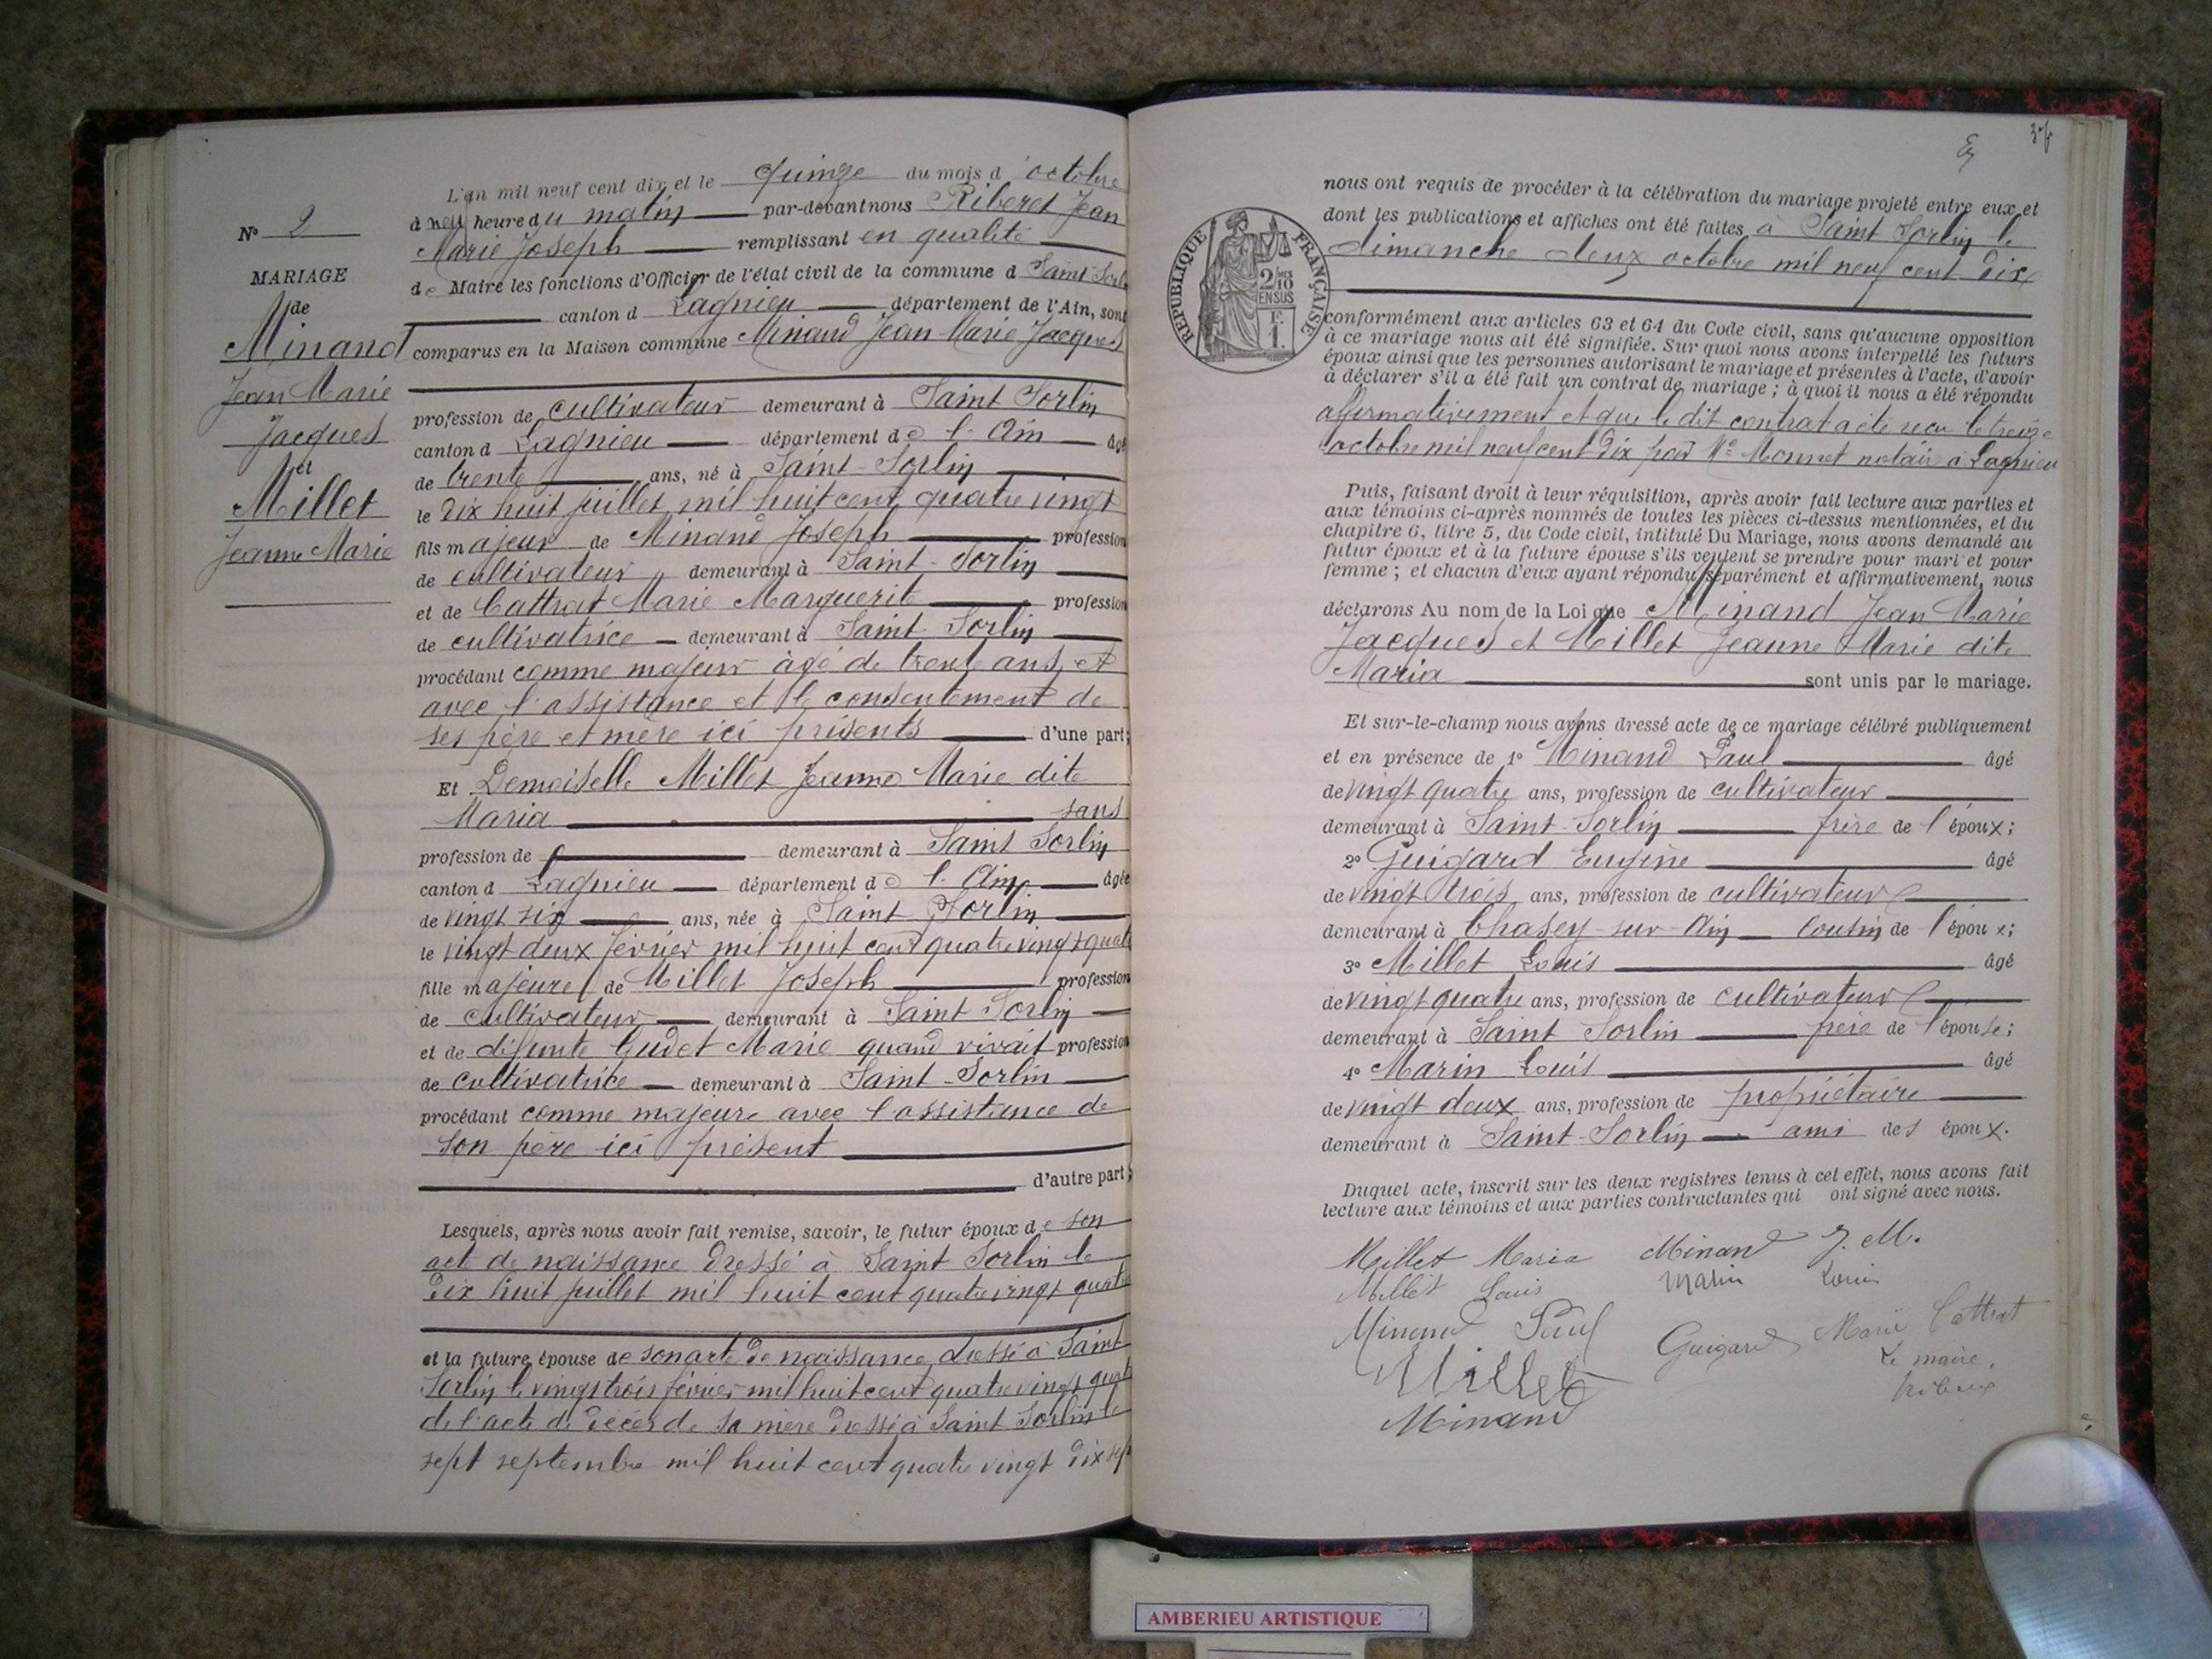 L'an mil neuf cent dix et le quinze du mois d'octobre
à neuf heure du matin par-devant nous Riberet Jean
Marie Joseph remplissant en qualité
de Maire les fonctions d'Officier de l'état civil de la commune d Saint Sorlin
canton d Lagnieu département de l'Ain, sont
comparus en la Maison commune Minand Jean Marie Jacques
N° 2
MARIAGE
de
Minand
Jean Marie
Jacques
et
Millet
Jeanne Marie
profession de cultivateur demeurant à Saint Sorlin
canton d Lagnieu département de l'Ain âgé
de trente ans, né à Saint-Sorlin
le dix huit juillet mil huit cent quatre vingt
fils majeur de Minand Joseph profession
de cultivateur demeurant à Saint-Sorlin
et de Cattrat Marie Marguerite profession
de cultivatrice demeurant à Saint Sorlin
procédant comme majeur âgé de trente ans, et
avec l'assistance et le consentement de
ses père et mère ici présents d'une part;
Et Demoiselle Millet Jeanne Marie dite
Maria sans
profession de demeurant à Saint Sorlin
canton d Lagnieu département de l'Ain âgée
de vingt six ans, née à Saint Sorlin
le vingt deux février mil huit cent quatre vingt quatre
fille majeure de Millet Joseph profession
de cultivateur demeurant à Saint Sorlin
et de défunte Gudet Marie quand vivait profession
de cultivatrice demeurant à Saint-Sorlin
procédant comme majeure avec l'assistance de
son père ici présent
d'autre part;
Lesquels, après nous avoir fait remise, savoir, le futur époux de son
acte de naissance dressé à Saint Sorlin le
dix huit juillet mil huit cent quatre vingt quatre
et la future épouse de son acte de naissance, dressé à Saint
Sorlin le vingt trois février mil huit cent quatre vingt quatre
de l'acte de décès de sa mère dressé à Saint Sorlin le
sept septembre mil huit cent quatre vingt dix sept
nous ont requis de procéder à la célébration du mariage projeté entre eux et
dont les publications et affiches ont été faites à Saint Sorlin le
dimanche deux octobre mil neuf cent dix
RÉPUBLIQUE FRANÇAISE
2/10
EN SUS
F.
1.
conformément aux articles 63 et 64 du Code civil, sans qu'aucune opposition
à ce mariage nous ait été signifiée. Sur quoi nous avons interpellé les futurs
époux ainsi que les personnes autorisant le mariage et présentes à l'acte, d'avoir
à déclarer s'il a été fait un contrat de mariage; à quoi il nous a été répondu
affirmativement et que le dit contrat a été reçu le treize
octobre mil neuf cent dix par Me Monnet notaire à Lagnieu
Puis, faisant droit à leur réquisition, après avoir fait lecture aux parties et
aux témoins ci-après nommés de toutes les pièces ci-dessus mentionnées, et du
chapitre 6, titre 5, du Code civil, intitulé Du Mariage, nous avons demandé au
futur époux et à la future épouse s'ils veulent se prendre pour mari et pour
femme; et chacun d'eux ayant répondu séparément et affirmativement, nous
déclarons Au nom de la Loi que Minand Jean Marie
Jacques et Millet Jeanne Marie dite
Maria sont unis par le mariage.
Et sur-le-champ nous avons dressé acte de ce mariage célébré publiquement
et en présence de 1° Minand Paul âgé
de vingt quatre ans, profession de cultivateur
demeurant à Saint-Sorlin frère de l'époux;
2° Guigard Eugène âgé
de vingt trois ans, profession de cultivateur
demeurant à Chasey-sur-Ain cousin de l'époux;
3° Millet Louis âgé
de vingt quatre ans, profession de cultivateur
demeurant à Saint Sorlin frère de l'épouse;
4° Marin Louis âgé
de vingt deux ans, profession de propriétaire
demeurant à Saint-Sorlin ami des époux.
Duquel acte, inscrit sur les deux registres tenus à cet effet, nous avons fait
lecture aux témoins et aux parties contractantes qui ont signé avec nous.
Meillet Maria Minand J. M.
Millet Louis Marin Louis
Minand Paul Guigard Marie Cattrat
Millet Le maire,
Minand
AMBERIEU ARTISTIQUE